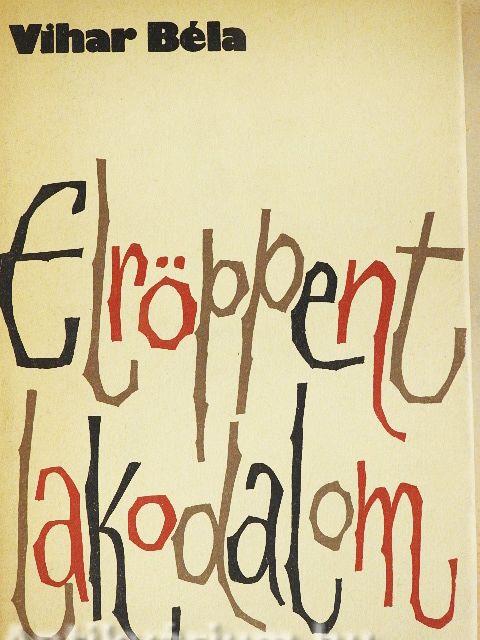 Vihar Béla
Elröppent
lakodalom